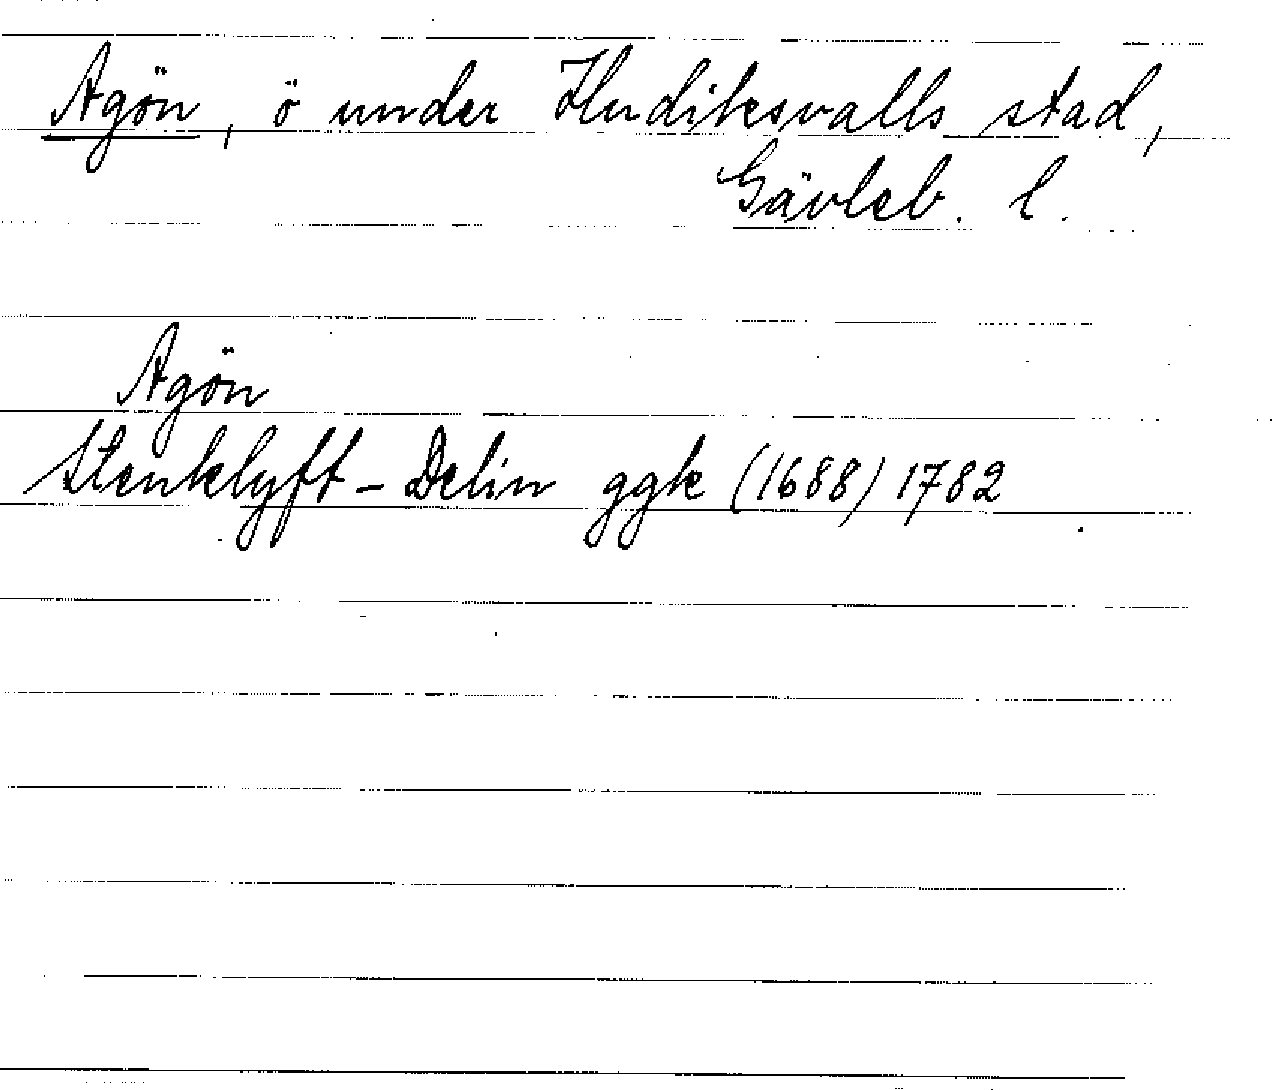 Agön, ö under Hudiksvalls stad,
Gävleb. l.
Agön
Stenklyft-Delin ggk (1688) 1782